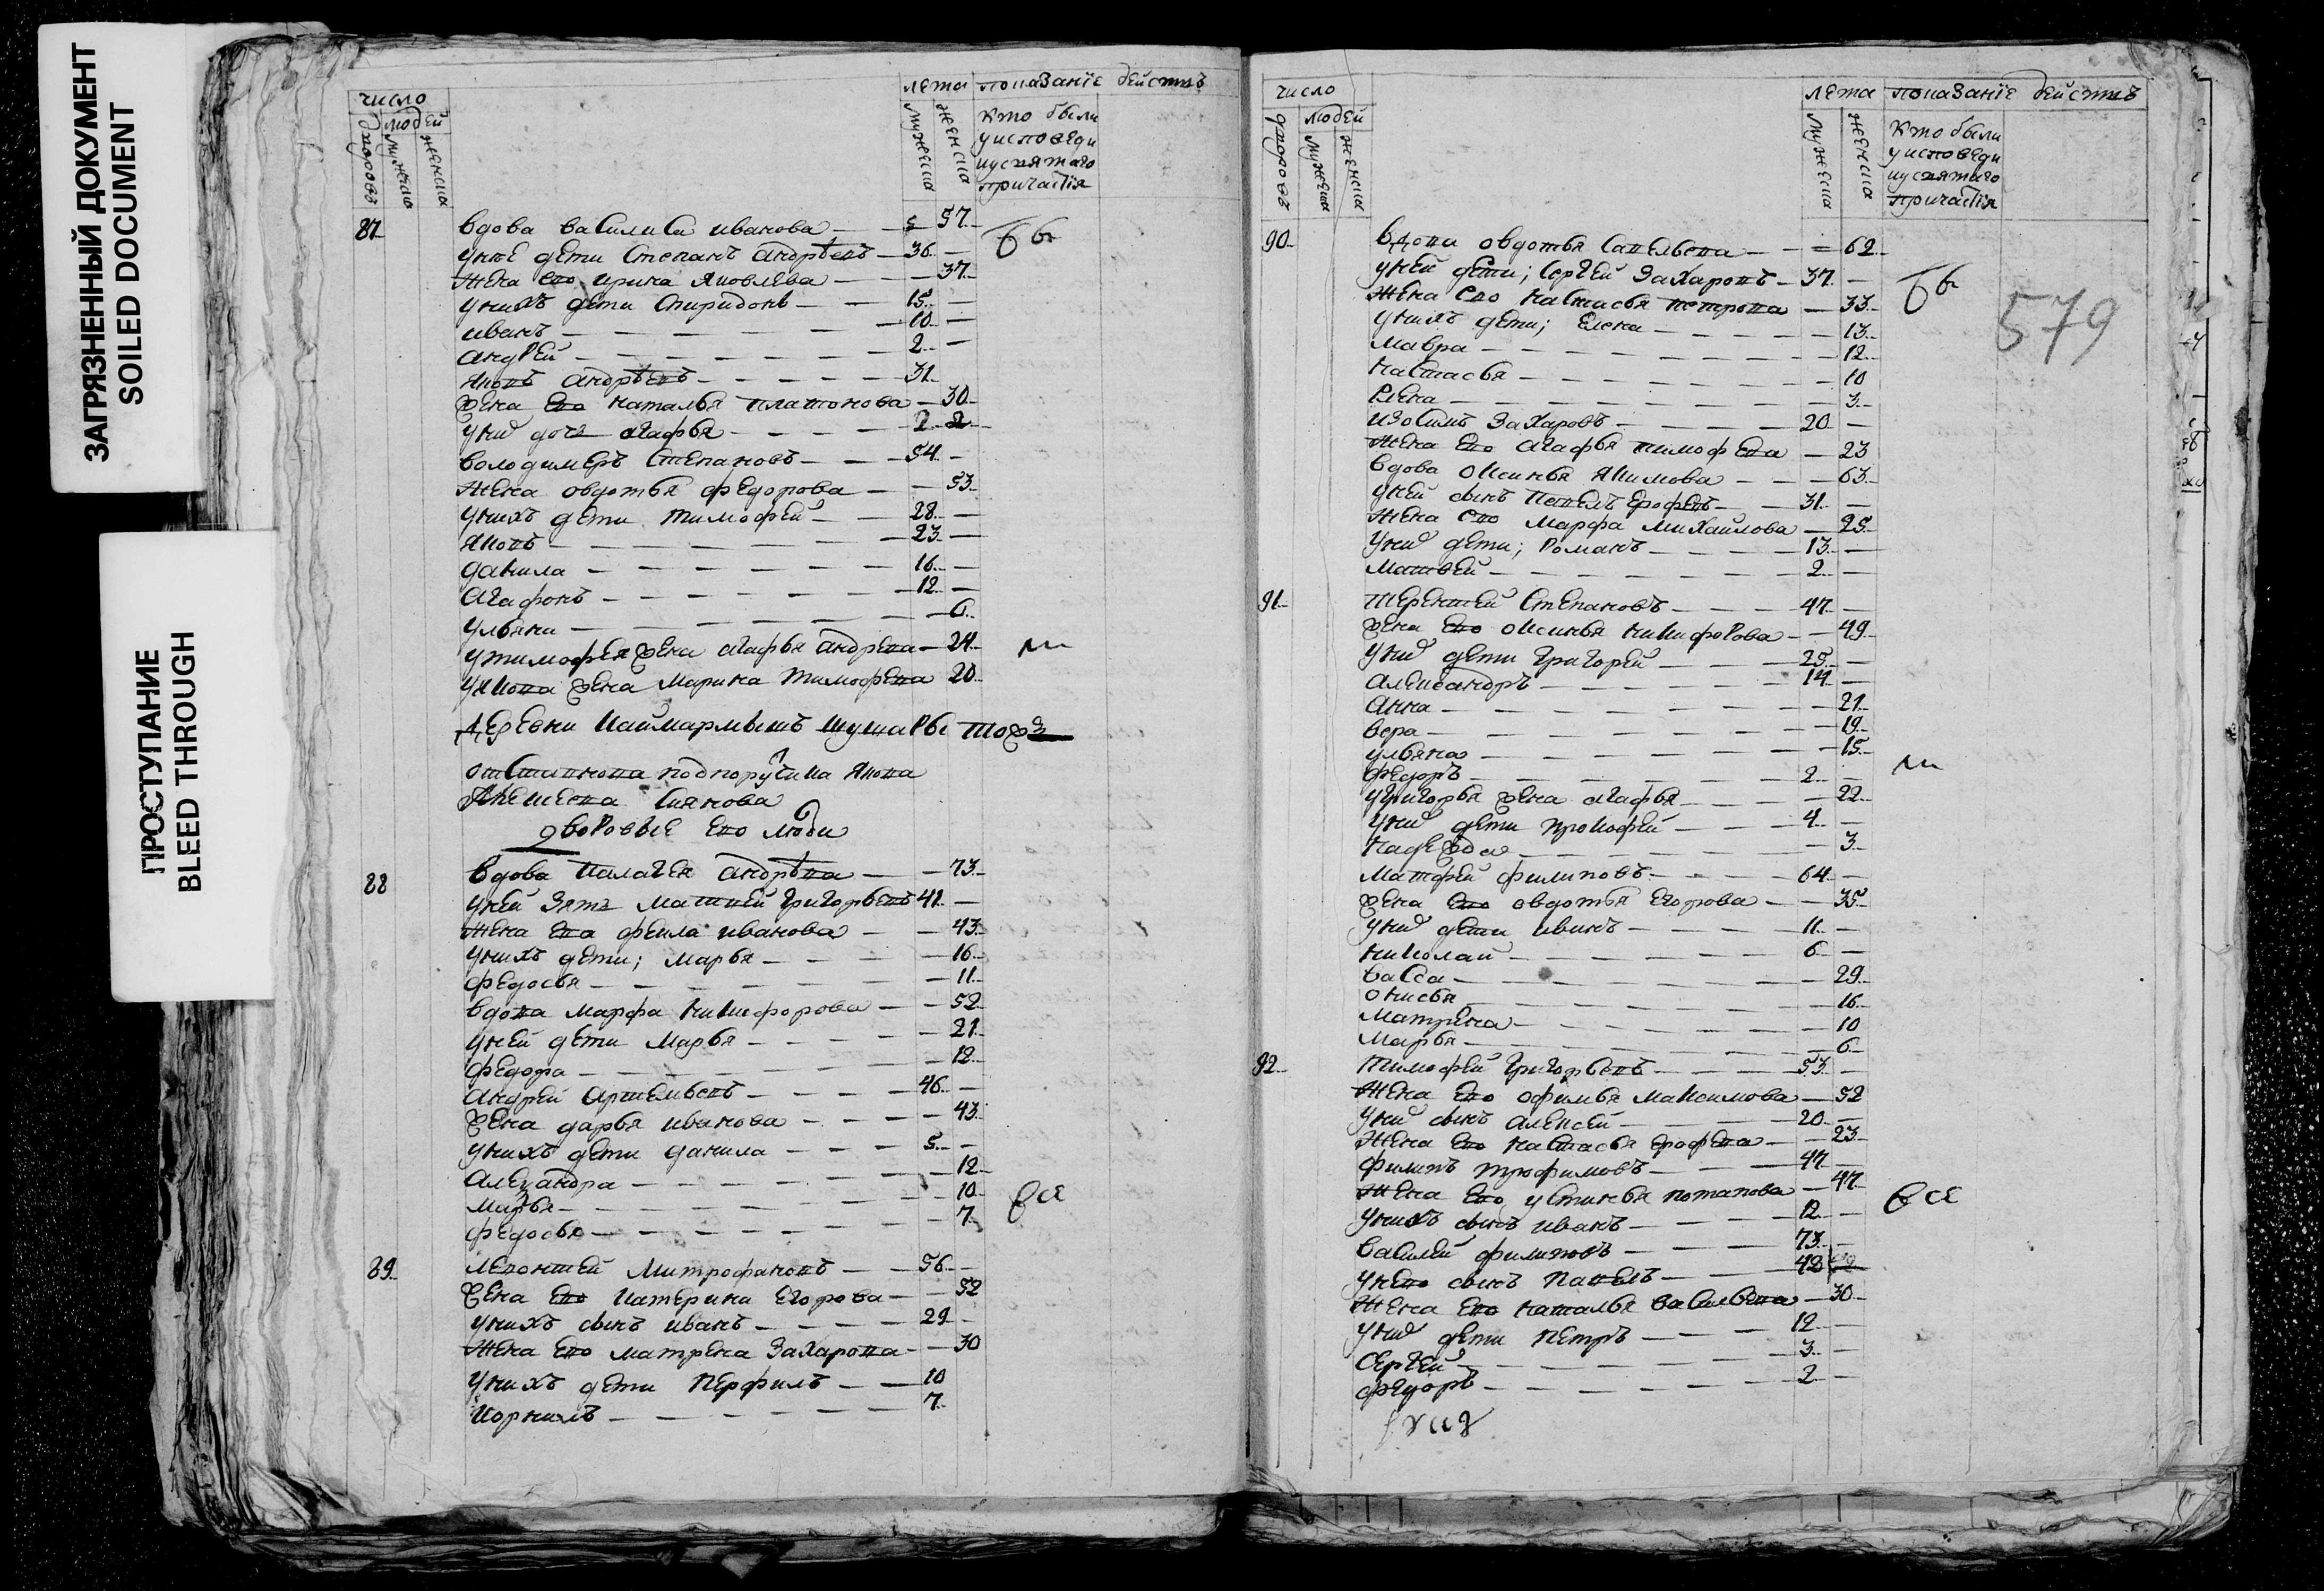 ЗАГРЯЗНЕННЫЙ ДОКУМЕНТ
SOILED DOCUMENT
ПРОСТУПАНИЕ
BLEED THROUGH
число лета показанїе действъ
дворовъ людей мужеска женска мужеска женска кто были
уисповеди
исвятаго
причастїя
87 вдова василиса иванова 57
унее дети степанъ андрѣевъ 36
жена ево ирина яковлева 37
унихъ дети спиридонъ 15
иванъ 10
андрей 2
яковъ андрѣевъ 31
жена ево наталья платонова 30
уних дочь агафья 2 2
володимеръ степановъ 54
жена овдотья федорова 53
унихъ дети тимофей 28
яковъ 23
данила 16
агафонъ 12
ульяна 6
утимофея жена агафья андрева 24
уякова жена марика тимофева 20
деревни каймарлышъ шушары тожъ
подпоручика якова
дворовые ево люди
88 вдова палагея андрѣева 73
уней зять матвей григорьевъ 41
жена ева фекла иванова 43
унихъ дети; марья 16
федосья 11
вдова марфа никифорова 52
уней дети марья 21
федора 12
андрей артемьевъ 46
жена дарья иванова 43
унихъ дети данила 5
александра 12
марья 10
федосья 7
все
89 леонтей митрофановъ 56
жена ево катерина егорова 52
унихъ сынъ иванъ 29
жена ево матрена захарова 30
унихъ дети перфилъ 10
корнилъ 7
число лета показанїе действъ
дворовъ людей мужеска женска мужеска женска кто были
уисповеди
исвятаго
причастїя
579
90 вдова овдотья савельева 62
уней дети; сергей захаровъ 37
жена ево настасья петрова 33
унихъ дети; елена 13
мавра 12
настасья 10
елена 3
изосимъ захаровъ 20
жена ево агафья тимофева 23
вдова оксинья якимова 63
уней сынъ павелъ ерофевъ 31
жена ево марфа михайлова 25
уних дети; романъ 13
матвей 2
91 терентей степановъ 47
жена ево оксинья никифорова 49
уних дети григорей 25
александръ 14
анна 21
вера 19
ульяна 15
федоръ 2
угригорья жена агафья 22
уних дети прокофей 4
надежда 3
матфей филиповъ 64
жена ево овдотья егорова 35
уних дети иванъ 11
николай 6
васса 29
онисья 16
матрена 10
марья 6
92 тимофей григорьевъ 53
жена ево офимья максимова 52
уних сынъ алексей 20
жена ево настасья ерофева 23
филипъ трофимовъ 47
жена ево устинья потапова 47
все
унихъ сынъ иванъ 12
василей филиповъ 73
унево сынъ павелъ 42
жена ево наталья васильева 30
уних дети петръ 12
сергей 3
федоръ 2